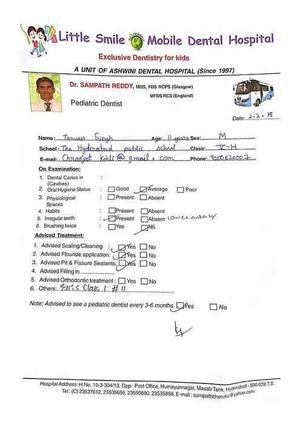 Little Smile Mobile Dental Hospital
Exclusive Dentistry for kids
A UNIT OF ASHWINI DENTAL HOSPITAL (Since 1997)
Dr. SAMPATH REDDY, MDS, FDS RCPS (Glasgow)
MFDS RCS (England)
Pediatric Dentist
Date: 2-2-
Name: Singh Age: 11 years Sex: M
School: The Hyderabad public school Class: V-H
E-mail: @gmail.com Phone:
On Examination:
1. Dental Caries in :
(Cavities)
2. Oral Hygiene Status : Good Average Poor
3. Physiological : Present Absent
Spaces
4. Habits : Present Absent
5. Irregular teeth : Present Absent
6. Brushing twice : Yes No
Adviced Treatment:
1. Advised Scaling/Cleaning : Yes No
2. Advised Flouride application: Yes No
3. Advised Pit & Fissure Sealants: Yes No
4. Advised Filling in
5. Advised Orthodontic treatment : Yes No
6. Others: Class I # 11
Note: Advised to see a pediatric dentist every 3-6 months Yes No
Hospital Address: H.No. 10-3-304/13, Opp: Post Office, Humayunnagar, Masab Tank, Hyderabad - 500 028.T.S.
Tel: (C) 23537612, 23535656, 23590690, 23535888, E-mail: